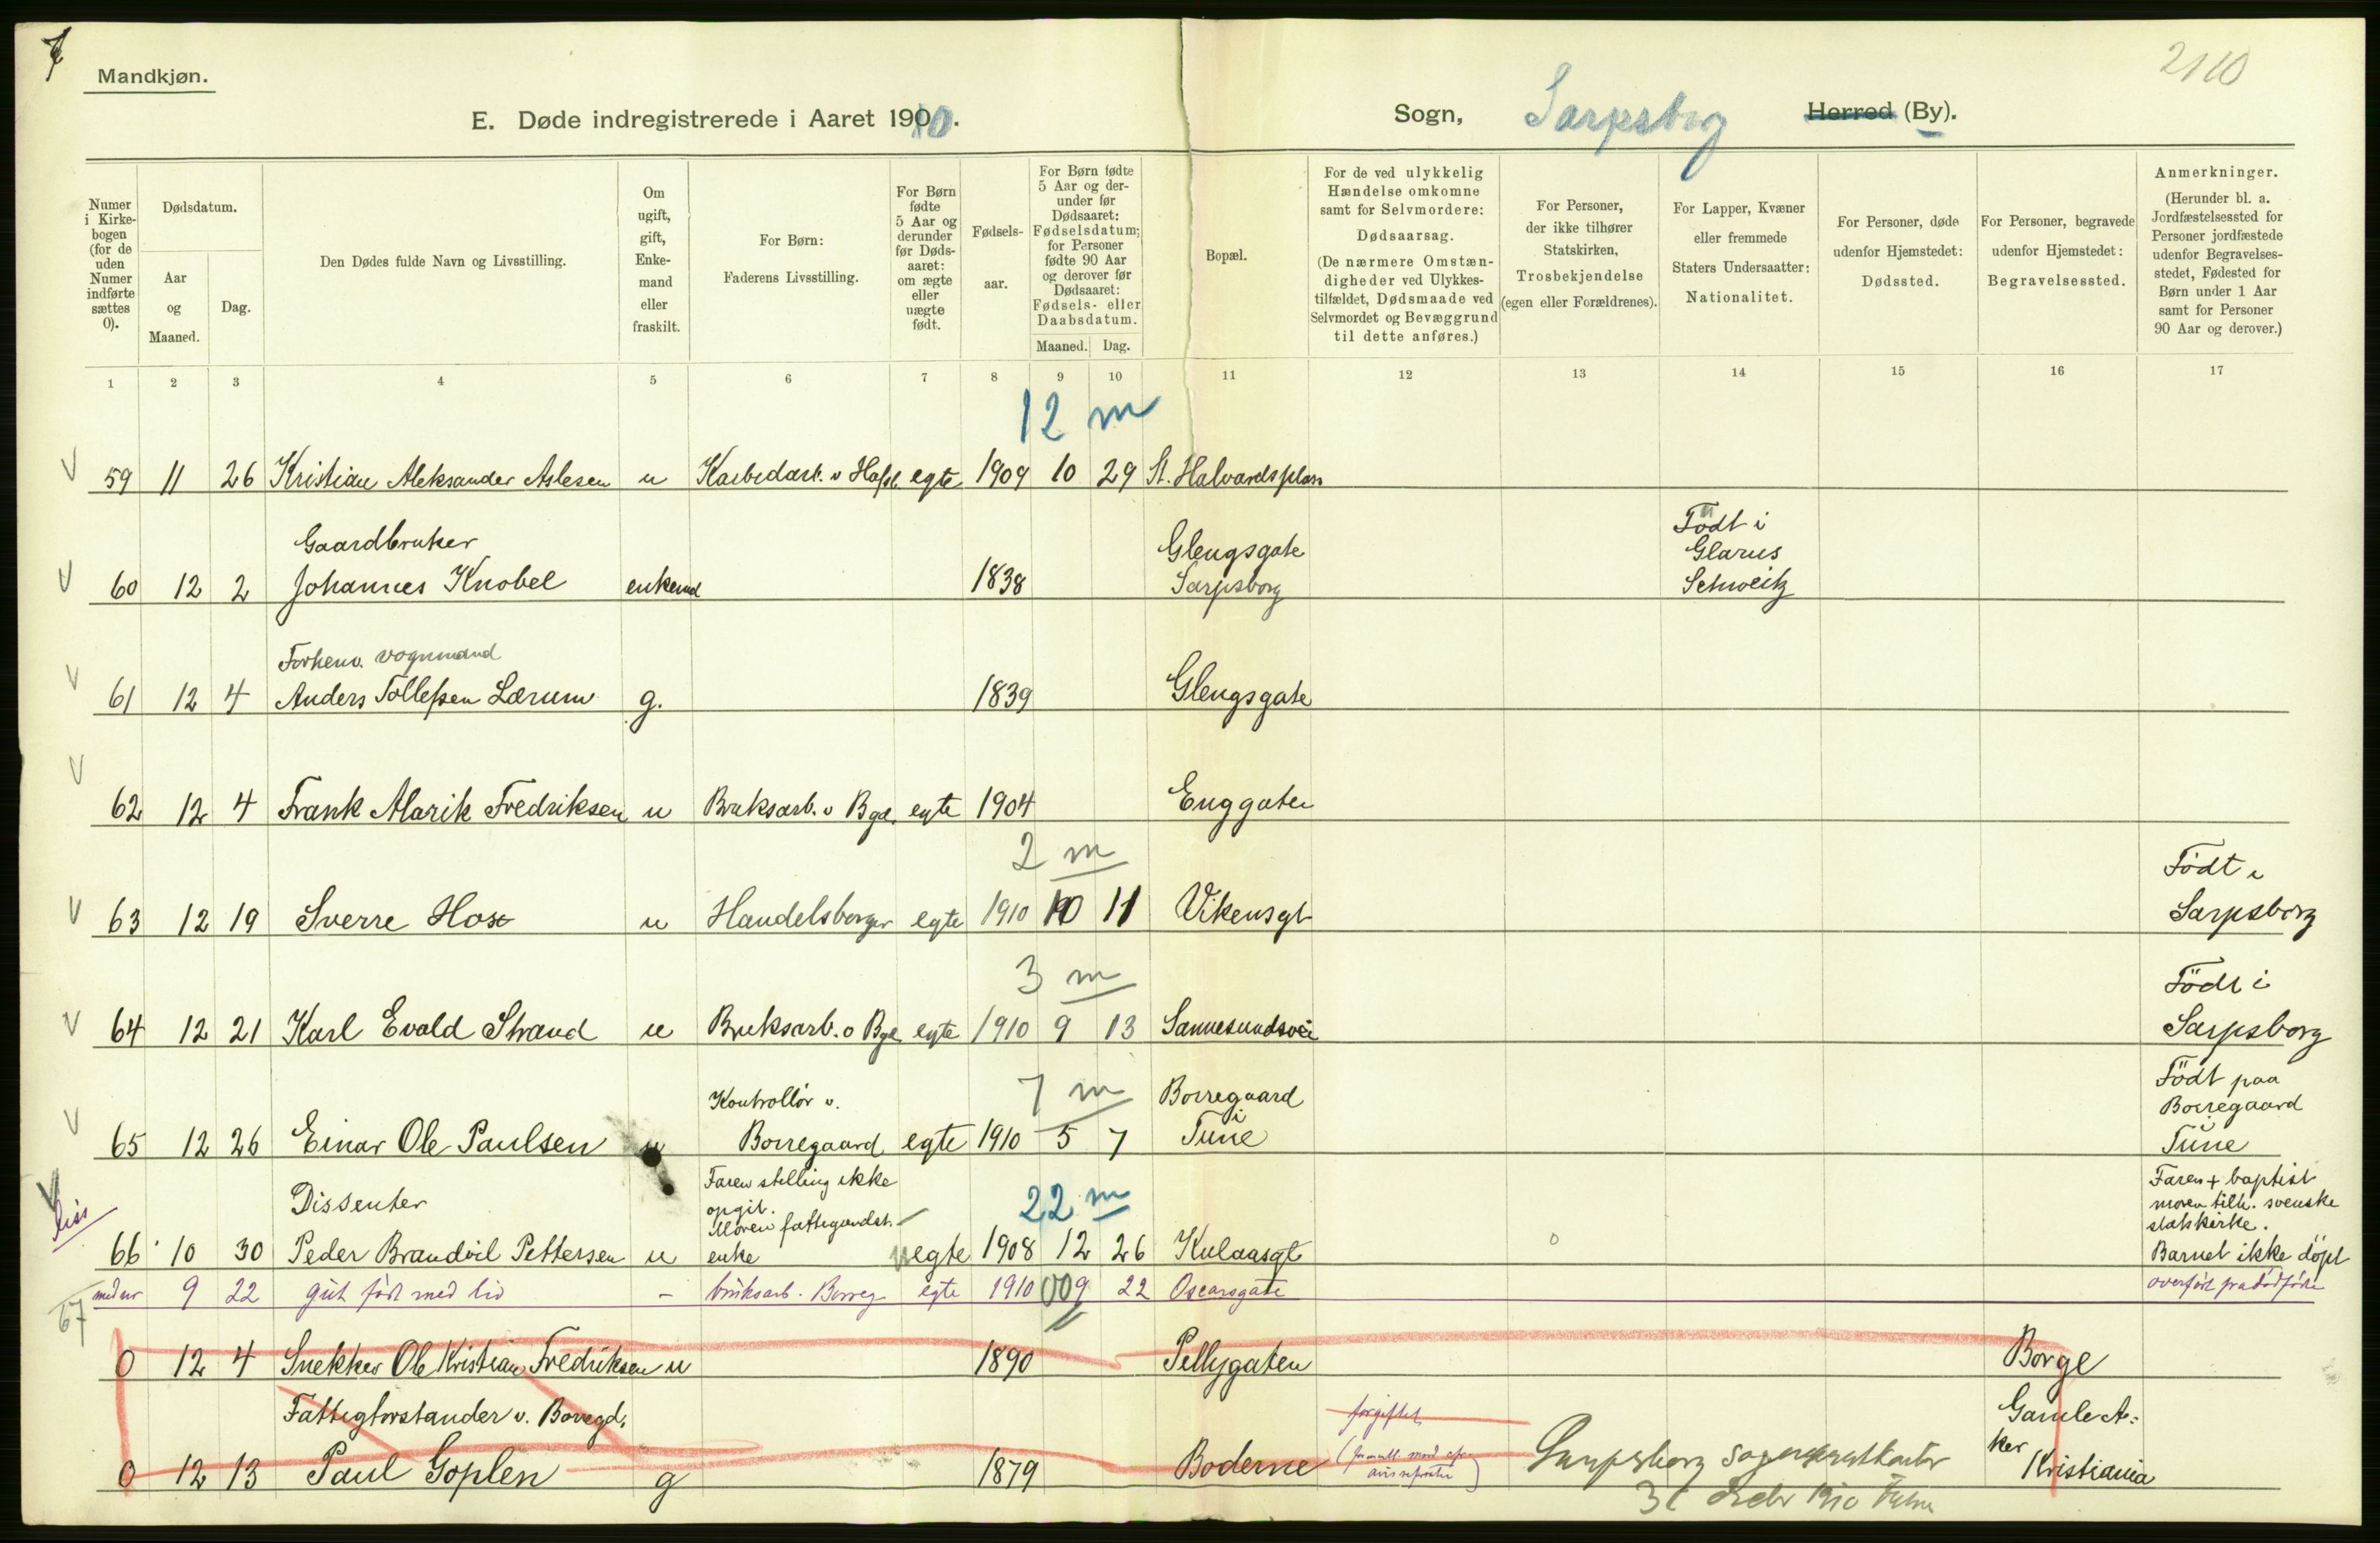 Mandkjøn.
2110
E. Døde indregistrerede i Aaret 1910.
Sogn, Sarpsborg Herred (By).
Numer i Kirkebogen (for de uden Numer indførte sættes 0).
Dødsdatum.
Aar og Maaned.
Dag.
Den Dødes fulde Navn og Livsstilling.
Om ugift, gift, Enkemand eller fraskilt.
For Børn:
Faderens Livsstilling.
For Børn fødte 5 Aar og derunder før Dødsaaret: om ægte eller uægte født.
Fødselsaar.
For Børn fødte 5 Aar og derunder før Dødsaaret: Fødselsdatum; for Personer fødte 90 Aar og derover før Dødsaaret: Fødsels- eller Daabsdatum.
Maaned. Dag.
Bopæl.
For de ved ulykkelig Hændelse omkomne samt for Selvmordere:
Dødsaarsag.
(De nærmere Omstændigheder ved Ulykkestilfældet, Dødsmaade ved Selvmordet og Bevæggrund til dette anføres.)
For Personer, der ikke tilhører Statskirken,
Trosbekjendelse
(egen eller Forældrenes).
For Lapper, Kvæner eller fremmede Staters Undersaatter:
Nationalitet.
For Personer, døde udenfor Hjemstedet:
Dødssted.
For Personer, begravede udenfor Hjemstedet:
Begravelsessted.
Anmerkninger.
(Herunder bl. a. Jordfæstelsessted for Personer jordfæstede udenfor Begravelsesstedet, Fødested for Børn under 1 Aar samt for Personer 90 Aar og derover.)
1 2 3 4 5 6 7 8 9 10 11 12 13 14 15 16 17
12 m
59 11 26 Kristian Aleksander Aslesen u Karbidarb. v Hafsl. egte 1909 10 29 St. Halvardsplass
Gaardbruker Glengsgate Födt i Glarus
60 12 2 Johannes Knobel enkemd 1838 Sarpsborg Schweitz
Forhenv. vognmand
61 12 4 Anders Tollefsen Lærum g. 1839 Glengsgate
62 12 4 Frank Alarik Fredriksen u Bruksarb. v Bgd. egte 1904 Enggaten
2 m Födt i
63 12 19 Sverre Hox u Handelsborger egte 1910 10 11 Vikensgt Sarpsborg
3 m Födt i
64 12 21 Karl Evald Strand u Bruksarb. v Bgd egte 1910 9 13 Sannesundsvei Sarpsborg
Kontrollör v. 7 m Borregaard i Födt paa Borregaard
65 12 26 Einar Ole Paulsen u Borregaard egte 1910 5 7 Tune Tune
Dissenter Faren stilling ikke opgit. Moren fattigunderst. 22 m Faren + baptist moren tilh. svenske statskirke.
66 10 30 Peder Brandvil Pettersen u enke uegte 1908 12 26 Kulaasgt Barnet ikke döpt
67 uden nr 9 22 gut født med liv - bruksarb. Borreg egte 1910 9 22 Oscarsgate overført fra dødfødte
0 12 4 Snekker Ole Kristian Fredriksen u 1890 Pellygaten Borge
Fattigforstander v. Borregd. forgiftet Gamle Aker
0 12 13 Paul Goplen g 1879 Boderne Kristiania
Sarpsborg sogneprestkontor
31 decbr 1910